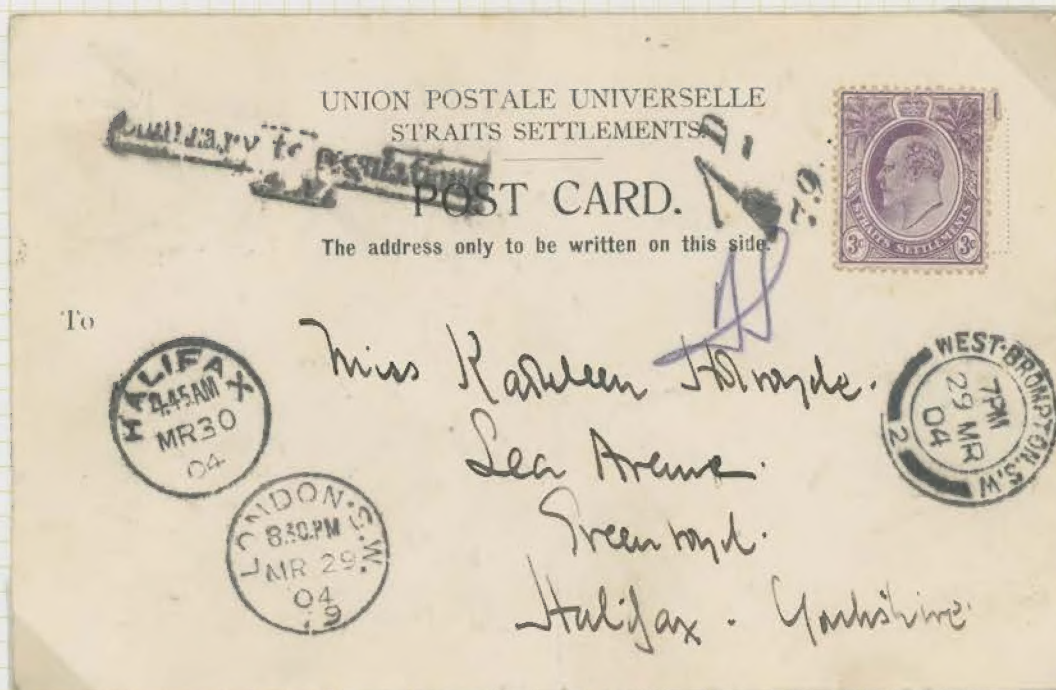 UNION POSTALE UNIVERSELLE
STRAITS SETTLEMENTS
Contrary to regulations
POST CARD.
The address only to be written on this side.
1D.
79.
STRAITS SETTLEMENTS
3c 3c
To
Miss Kathleen Holroyde.
Lea Avenue.
Greenroyd.
Halifax. Yorkshire
HALIFAX
4.45AM
MR30
04
LONDON.S.W.
8.30.PM
MR 29
04
19
WEST-BROMPTON.S.W
7PM
29 MR
04
2